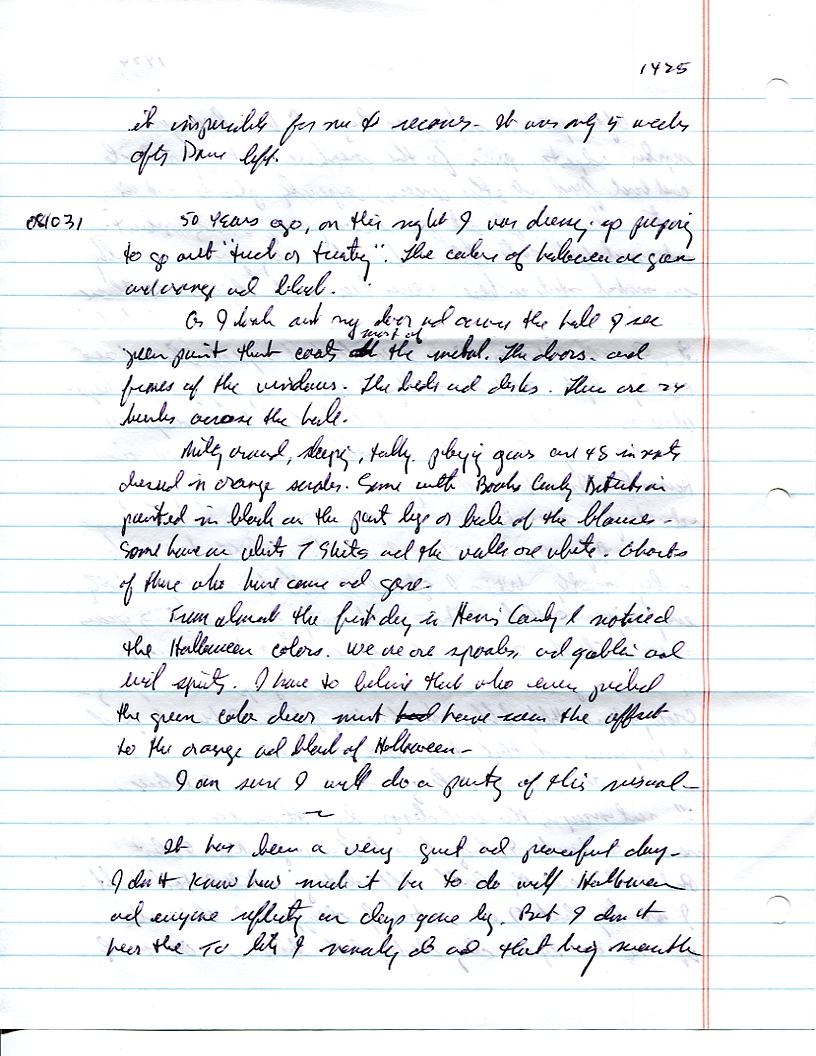 1425
it impossible for me to recover. It was only 5 weeks
after Dave left.
081031
50 years ago, on this night I was dressing up preparing
to go out "trick or treating". The colors of halloween are green
and orange and black.
As I look out my door and across the hall I see
green paint that coats most of the metal. The doors and
frames of the windows. The beds and desks. There are 24
bunks across the hall.
Milling around, sleeping, talking, playing games are 48 inmates
dressed in orange scrubs. Some with County Detention
painted in black on the pant legs or back of the blouses.
Some have on white T Shirts and the walls are white. Ghosts
of those who have come and gone.
From almost the first day in County I noticed
the Halloween colors. We are spooks and goblin and
evil spirits. I have to believe that who ever picked
the green color must have seen the affect
to the orange and black of Halloween.
I am sure I will do a painting of this visual.
~
It has been a very quiet and peaceful day.
I don't know how much it has to do with Halloween
and everyone reflecting on days gone by. But I don't
hear the TV like I normally do and that big mouth